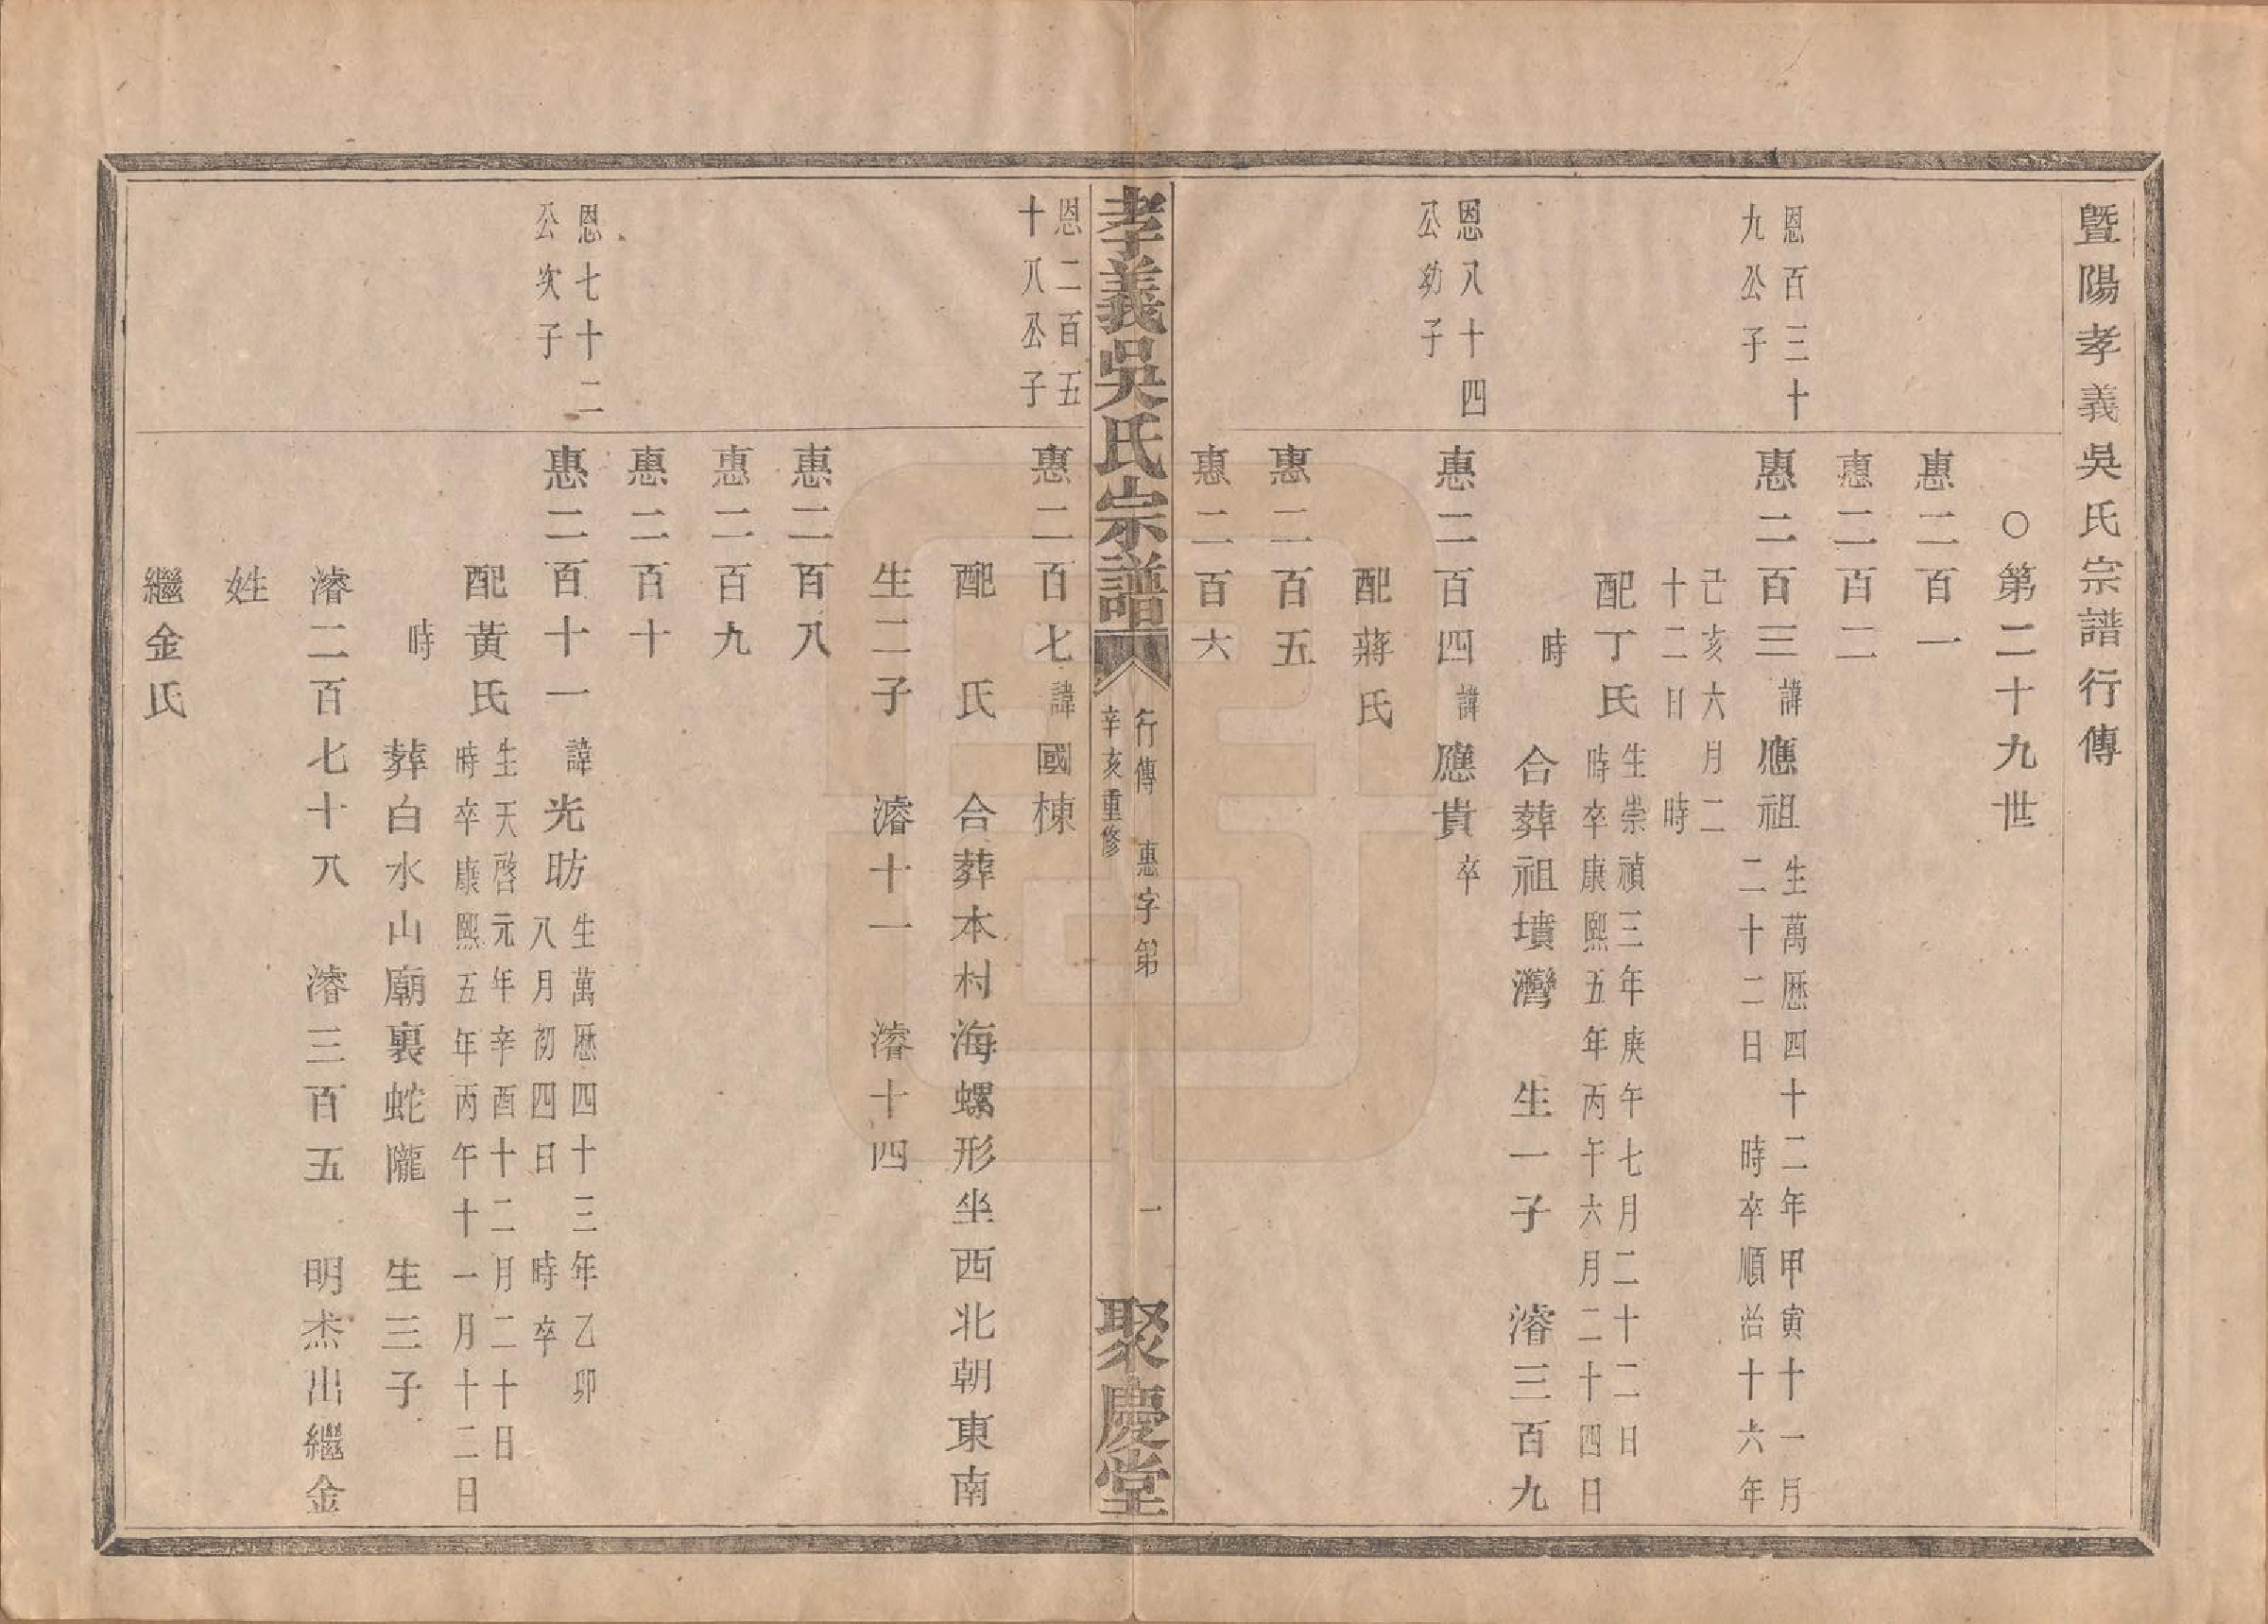 暨陽孝義吳氏宗譜行傳
○第二十九世
惠二百一
惠二百二
恩百三十
九公子
惠二百三諱應祖
生萬歷四十二年甲寅十一月
二十二日 時卒順治十六年
己亥六月二
十二日 時
配丁氏
生崇禎三年庚午七月二十二日
時卒康熙五年丙午六月二十四日
時 合葬祖墳灣 生一子 濬三百九
恩八十四
公幼子
惠二百四諱應貴卒
配蔣氏
惠二百五
惠二百六
孝義吳氏宗譜
行傳 惠字第 一
辛亥重修
聚慶堂
恩二百五
十八公子
惠二百七諱國棟
配 氏 合葬本村海螺形坐西北朝東南
生二子 濬十一 濬十四
惠二百八
惠二百九
惠二百十
恩七十二
公次子
惠二百十一諱光昉
生萬歷四十三年乙卯
八月初四日 時卒
配黃氏
生天啓元年辛酉十二月二十日
時卒康熙五年丙午十一月十二日
時 葬白水山廟裏蛇隴 生三子
濬二百七十八 濬三百五 明杰出繼金
姓
繼金氏